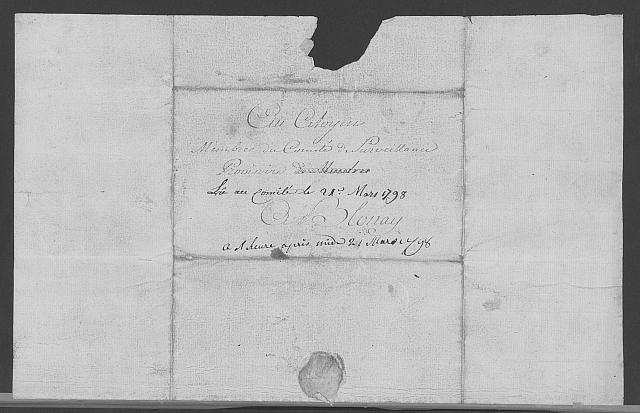 Aux Citoyens
Membres du Comité de Surveillance
Provisoire de Montreux
Lû au Comité le 21e. Mars 1798
à Blonay
a 1 heure après midi 21 Mars 1798